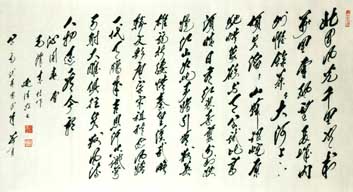 北国风光千里冰封
万里雪飘望长城内
外惟余莽莽大河上下
顿失滔滔山舞银蛇原
驰蜡象欲与天公试比高
须晴日看红装素裹分外妖
娆江山如此多娇引无数英
雄竞折腰惜秦皇汉武略
输文采唐宗宋祖稍逊风骚
一代天骄成吉思汗只识弯
弓射大雕俱往矣数风流
人物还看今朝
沁园春雪
毛泽东